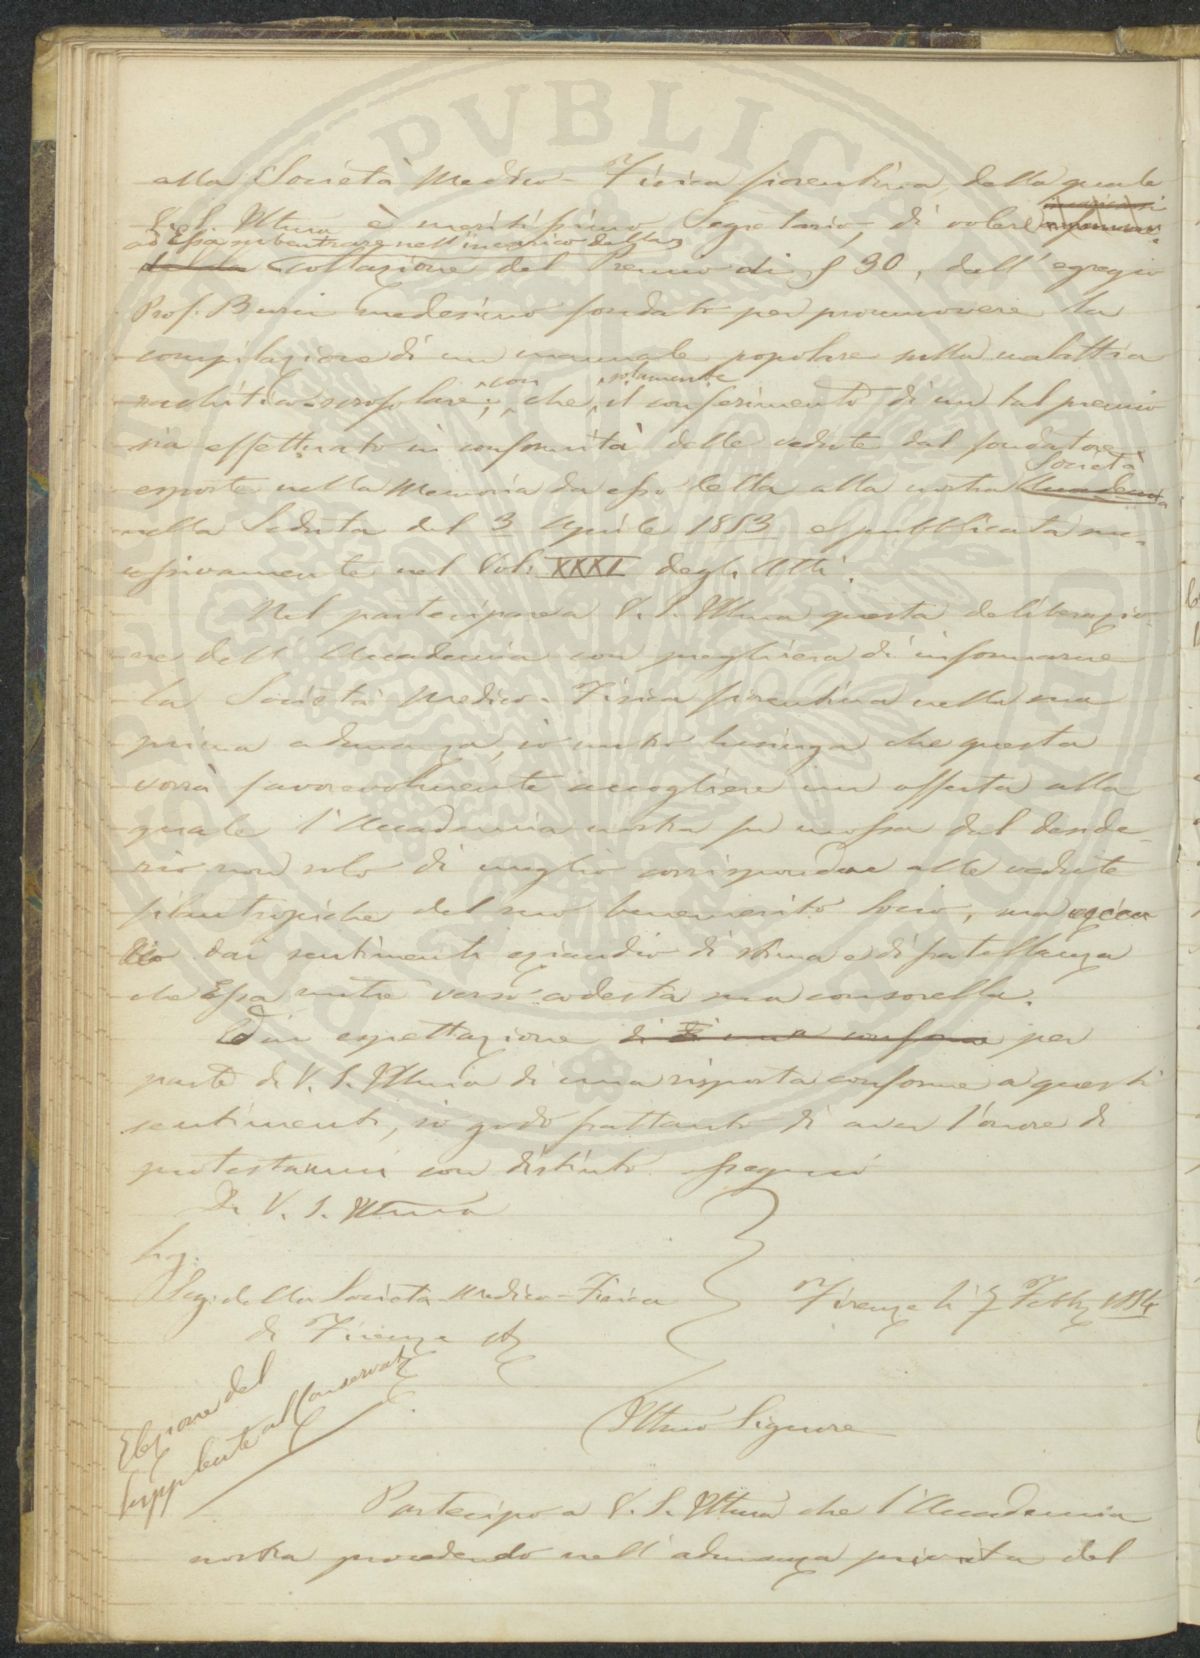 alla Società Medico-Fisica fiorentina, della quale
V. S. Illma è meritissimo Segretario, di volere
ad Essa subentrare nell'incarico della
della Collazione del Premio di £ 30, dall'egregio
Prof. Burci medesimo fondato per promuovere la
compilazione di un manuale popolare sulla malattia
rachitico-scrofolare; con che solamente il conferimento di un tal premio
sia effettuato in conformità delle vedute dal fondatore
esposte nella Memoria da esso letta alla nostra Accademia Società
nella Seduta del 3 Aprile 1853 e pubblicata suc-
cessivamente nel Vol. XXXI degli Atti.
Nel partecipare a V. S. Illma questa deliberazio-
ne dell'Accademia con preghiera di informarne
la Società Medico-Fisica fiorentina nella sua
prima adunanza, io nutro lusinga che questa
vorrà favorevolmente accogliere un offerta alla
quale l'Accademia nostra fu mossa dal deside-
rio non solo di meglio corrispondere alle vedute
filantropiche del suo benemerito Socio, ma
dai sentimenti eziandio di stima e di fratellanza
che Essa nutre verso codesta sua consorella.
Ed in espettazione di una conforme per
parte di V. S. Illma di una risposta conforme a questi
sentimenti, io godo frattanto di aver l'onore di
protestarmi con distinto ossequio
Di V. S. Illma
Sig.
Seg. della Società Medico-Fisica
di Firenze
Firenze li 7 Febb. 1854
Elezione del
Supplente al Conservat
Illmo Signore
Partecipo a V. S. Illma che l'Accademia
nostra procedendo nell'adunanza privata del